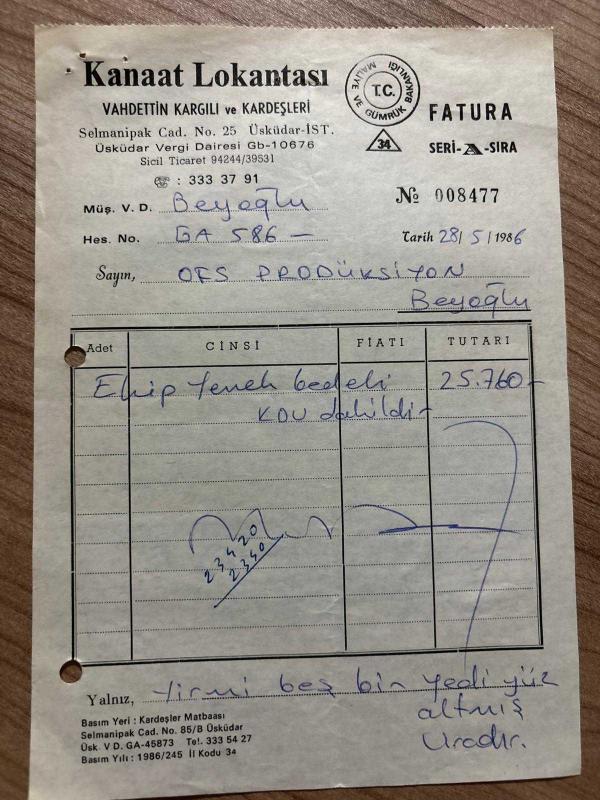 Kanaat Lokantası
VAHDETTİN KARGILI ve KARDEŞLERİ
Selmanipak Cad. No. 25 Üsküdar-İST.
Üsküdar Vergi Dairesi Gb-10676
Sicil Ticaret 94244/39531
☎ : 333 37 91
T.C.
MALİYE VE GÜMRÜK BAKANLIĞI
34
FATURA
SERİ-A-SIRA
№ 008477
Müş. V. D. Beyoğlu
Hes. No. GA 586 —
Tarih 28/5/1986
Sayın, OFS PRODÜKSİYON
Beyoğlu
Adet CİNSİ FİATI TUTARI
Ekip Yemek bedeli 25.760-
KDV dahildir
23420
2340
Yalnız, Yirmi beş bin yedi yüz
altmış
liradır.
Basım Yeri : Kardeşler Matbaası
Selmanipak Cad. No. 85/B Üsküdar
Üsk V D. GA-45873 Tel. 333 54 27
Basım Yılı : 1986/245 İl Kodu 34